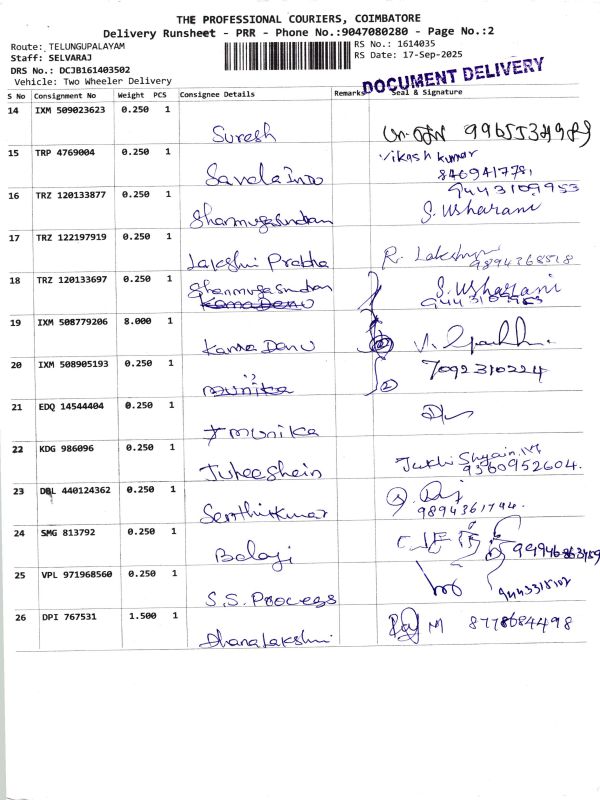 THE PROFESSIONAL COURIERS, COIMBATORE
Delivery Runsheet - PRR - Phone No.:9047080280 - Page No.:2
Route: TELUNGUPALAYAM
Staff: SELVARAJ
DRS No.: DCJB161403502
Vehicle: Two Wheeler Delivery
RS No.: 1614035
RS Date: 17-Sep-2025
DOCUMENT DELIVERY
S No Consignment No Weight PCS Consignee Details Remarks Seal & Signature
14 IXM 509023623 0.250 1
Suresh
15 TRP 4769004 0.250 1 Vikash kumar
8409417781
16 TRZ 120133877 0.250 1 9443109953
Shanmugasundram S. Usharani
17 TRZ 122197919 0.250 1
Lakshmi Prabha R. Lakshmi
9894368518
18 TRZ 120133697 0.250 1
Shanmugasundram S. Usharani
Kama Denu
19 IXM 508779206 8.000 1
Kama Denu
20 IXM 508905193 0.250 1 7092310224
munika
21 EDQ 14544404 0.250 1
munika
22 KDG 986096 0.250 1
9360952604.
23 DBL 440124362 0.250 1
Senthilkumar 9894361744.
24 SMG 813792 0.250 1
Balaji
25 VPL 971968560 0.250 1
S.S. Process
26 DPI 767531 1.500 1
Dhanalakshmi 8778684498